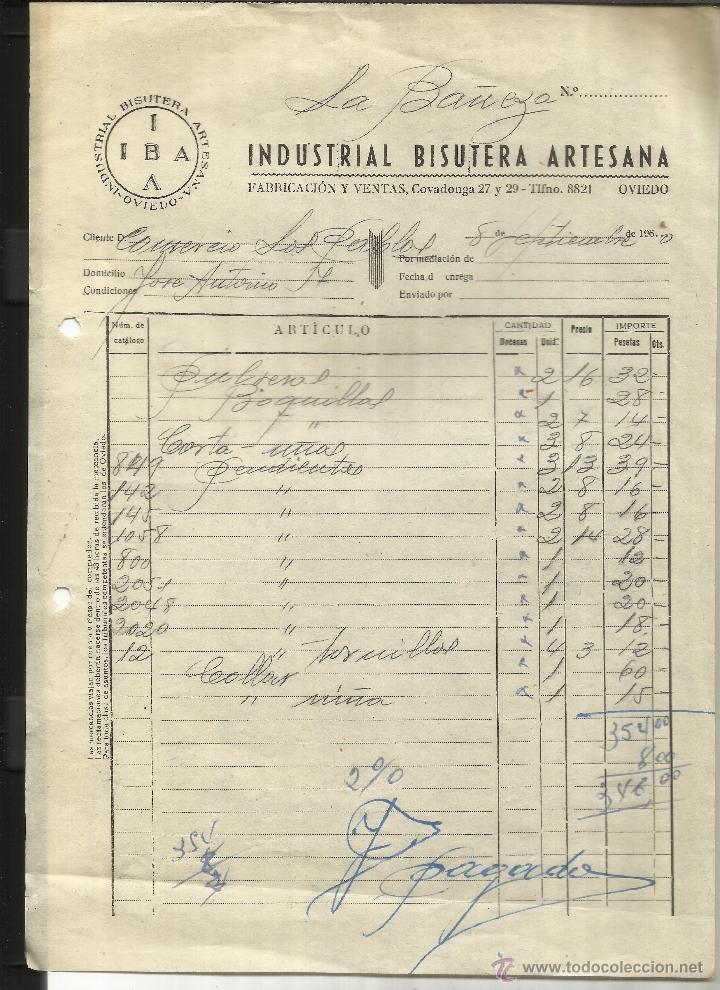 La Bañeza N.º
INDUSTRIAL BISUTERA ARTESANA
-OVIEDO-
I
I B A
A
INDUSTRIAL BISUTERA ARTESANA
FABRICACIÓN Y VENTAS, Covadonga 27 y 29 - Tlfno. 8821 OVIEDO
Cliente D. Comercio Los 8 de Septiembre de 1960
Por mediación de
Domicilio José Antonio Fecha d entrega
Condiciones Enviado por
Núm. de catálogo ARTÍCULO CANTIDAD Precio IMPORTE
Docenas Unid. Pesetas Cts.
Pulseras 2 16 32-
Boquillas 1 28-
" 2 7 14-
Corta-uñas 3 8 24-
849 Pendientes 3 13 39-
142 " 2 8 16-
145 " 2 8 16
1058 " 2 14 28-
800 " 1 12
2051 " 1 20-
2048 " 1 20-
2020 " 1 18-
12 " tornillos 4 3 12-
Collar 1 60-
" niña 1 15-
354 00
8 00
346 00
2%
354
Pagado
Las mercancías viajan por cuenta y riesgo del comprador.
Las reclamaciones deberán hacerse dentro de las 48 horas de recibida la mercancía.
Para toda clase de asuntos, los tribunales competentes se entenderán los de Oviedo.
www.todocoleccion.net